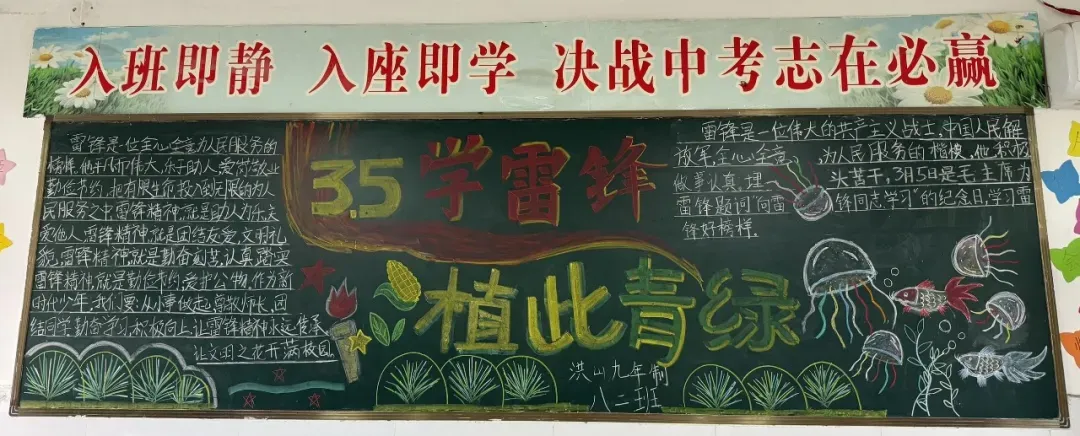 入班即静 入座即学 决战中考志在必赢
雷锋是一位全心全意为人民服务的
楷模,他平凡而伟大,乐于助人,爱岗敬业
勤俭节约,把有限生命投入到无限的为人
民服务之中.雷锋精神就是助人为乐,关
爱他人.雷锋精神就是团结友爱,文明礼
貌.雷锋精神就是勤奋刻苦,认真踏实
雷锋精神就是勤俭节约,爱护公物,作为新
时代少年,我们要从小事做起,尊敬师长,团
结同学勤奋学习,积极向上,让雷锋精神永远传承
让文明之花开满校园.
3.5学雷锋
植此青绿
洪山九年制
八二班
雷锋是一位伟大的共产主义战士,中国人民解
放军,全心全意 为人民服务的楷模,他积极
做事认真,理 头苦干,3月5日是毛主席为
雷锋题词"向雷 锋同志学习"的纪念日,学习雷
锋好榜样.